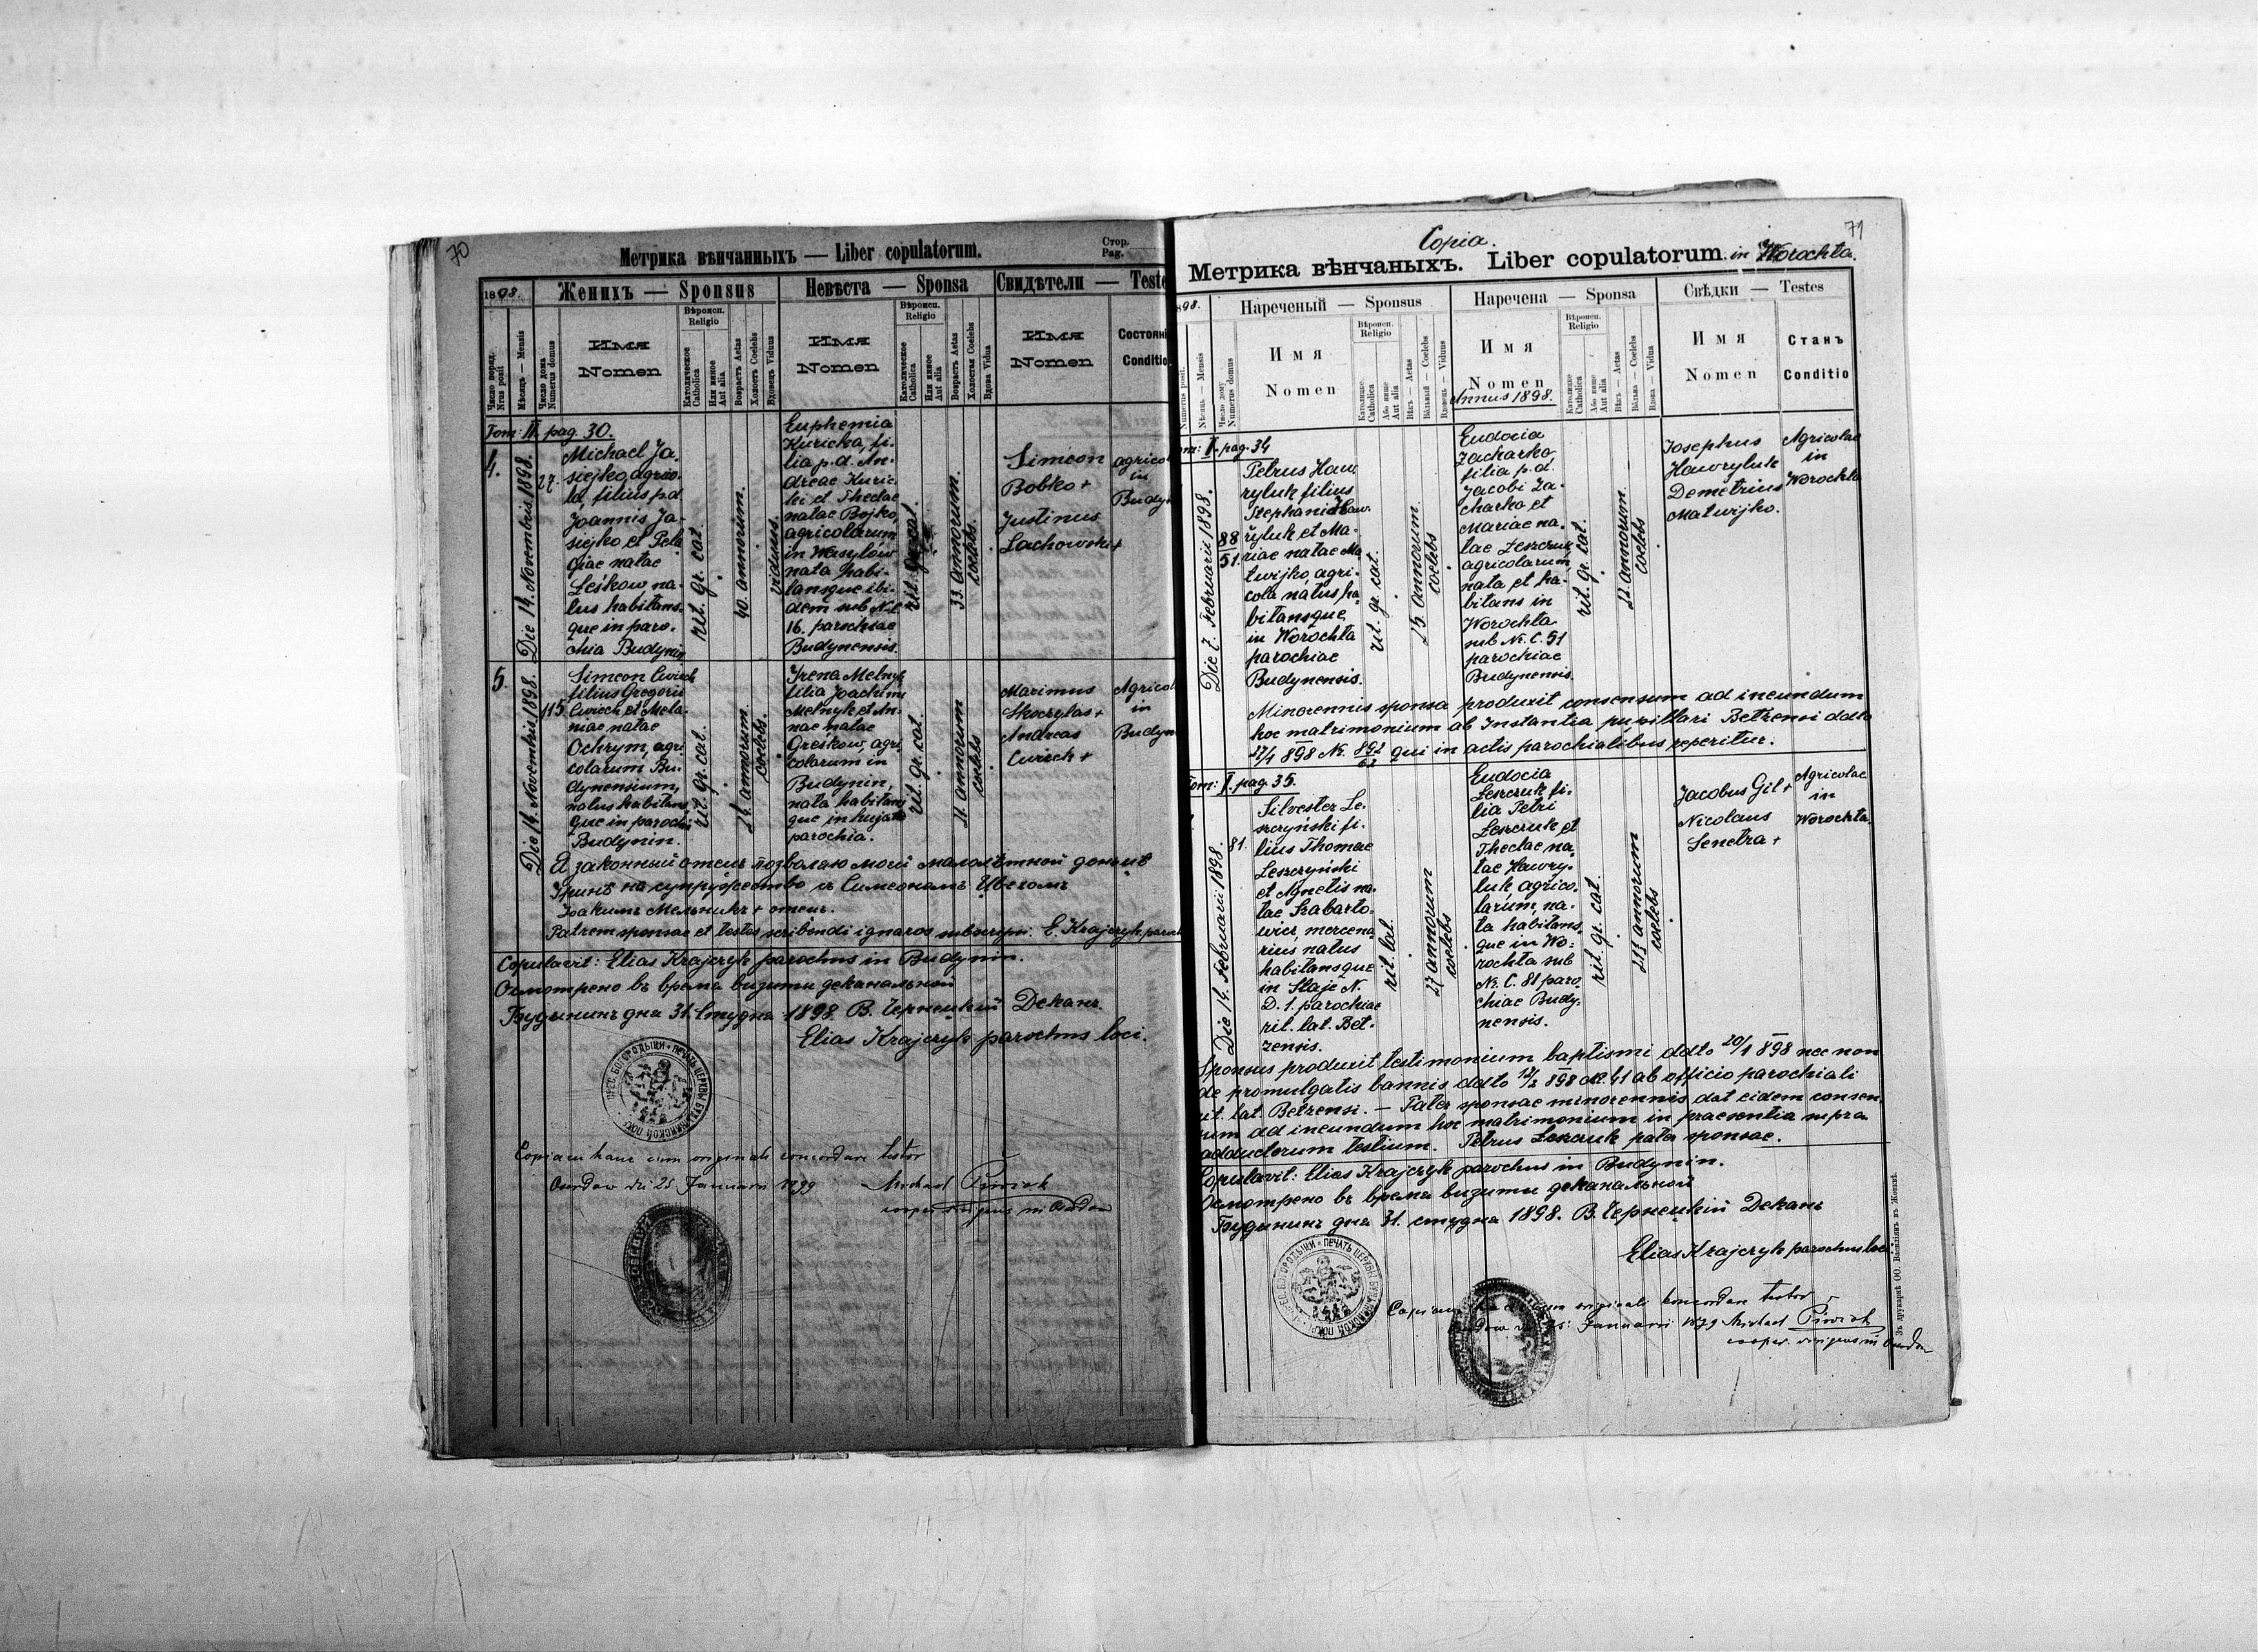 70
Метрика вѣнчанныхъ — Liber copulatorum.
Стор.
Pag.
1898.
Женихъ — Sponsus
Невѣста — Sponsa
Свидѣтели — Teste
Число поряд.
Nrus posit
Мѣсяцъ — Mensis
Число дома
Numerus domus
Имя
Nomen
Вѣроисп.
Religio
Католическое
Catholica
Или иное
Aut alia
Возрастъ Aetas
Холостъ Coelebs
Вдовецъ Viduus
Имя
Nomen
Вѣроисп.
Religio
Католическое
Catholica
Или иное
Aut alia
Возрастъ Aetas
Холостая Coelebs
Вдова Vidua
Имя
Nomen
Состояні
Conditio
Tom: II. pag. 30.
4.
Die 14. Novembris 1898.
27.
Michael Ja-
siejko, agrico-
la, filius p.d.
Joannis Ja-
siejko et Pela-
giae natae
Leśkow na-
tus habitans-
que in paro-
chia Budynin
rit. gr. cat.
40. annorum.
viduus.
Euphemia
Kuricka, fi-
lia p. d. An-
dreae Kuric-
ki et Theclae
natae Bojko,
agricolarum
in Wasylów
nata habi-
tansque ibi-
dem sub N.C.
16. parochiae
Budynensis.
rit. gr. cat.
33. annorum.
coelebs.
Simeon
Bobko +
Justinus
Lachowski +
agricol
in
Budyn
5.
Die 14. Novembris 1898.
115
Simeon Cwiech
filius Gregorii
Cwiech et Mela-
niae natae
Ochrym, agri
colarum Bu-
dynensium,
natus habitans
que in parochi
Budynin.
rit. gr. cat.
24. annorum
coelebs.
Yrena Melnyk
filia Joachimi
Melnyk et An-
nae natae
Greskow, agri
colarum in
Budynin,
nata habitans
que in hujate
parochia.
rit. gr. cat.
21. annorum
coelebs
Maximus
Skoczylas +
Andreas
Cwiech +
Agricol
in
Budyn
Я законный отець позволяю моей малолѣтной доньцѣ
Иринѣ на супружество съ Симеономъ Цвѣхомъ
Іоакимъ Мельникъ + отець.
Patrem sponsae et testes scribendi ignaros subscripsi: E. Krajczyk paroch
Copulavit: Elias Krajczyk parochus in Budynin.
Осмотрено въ время визиты деканальной
Будынинъ дня 31. Студня 1898. В. Чернецкій Деканъ.
Elias Krajczyk parochus loci.
Copiam hanc cum originali concordare testor
die 25 Januarii 1899 Michael
71
Copia.
Метрика вѣнчаныхъ. Liber copulatorum. in Worochta.
898.
Нареченый — Sponsus
Наречена — Sponsa
Свѣдки — Testes
Numerus posit.
Мѣсяць — Mensis
Число дому
Numerus domus
Имя
Nomen
Вѣроисп.
Religio
Католицке
Catholica
Або инше
Aut alia
Вѣкъ — Aetas
Вôльный — Coelebs
Вдовець — Viduus
Имя
Nomen
Annus 1898.
Вѣроисп.
Religio
Католицке
Catholica
Або инше
Aut alia
Вѣкъ — Aetas
Вôльна — Coelebs
Вдова — Vidua
Имя
Nomen
Станъ
Conditio
om: II. pag. 34
Die 7. Februarii 1898.
88
51.
Petrus Haw
ryluk filius
Stephani Haw-
ryluk et Ma-
riae natae Ma
twijko, agri-
cola natus ha
bitansque
in Worochta
parochiae
Budynensis.
rit. gr. cat.
25. annorum
coelebs
Eudocia
Zacharko,
filia p. d.
Jacobi Za-
charko et
Mariae na-
tae Leszczuk
agricolarum,
nata et ha-
bitans in
Worochta
sub Nr. C. 51
parochiae
Budynensis
rit. gr. cat.
22. annorum
coelebs
Josephus
Hawryluk
Demetrius
Matwijko.
Agricolae
in
Worochta
Minorennis sponsa produxit consensum ad ineundum
hoc matrimonium ab Instantia pupillari Bełzensi ddto
27/1 898 Nr. 892/62 qui in actis parochialibus reperitur.
om: I. pag. 35.
Die 14. Februarii 1898.
81.
Silvester Le-
szczyński fi-
lius Thomae
Leszczyński
et Agnetis na-
tae Skabarto-
wicz, mercena
rius natus
habitansque
in Staje N.
D. 1. parochiae
rit. lat. Beł-
zensis.
rit. lat.
27 annorum
coelebs
Eudocia
Leszczuk fi-
lia Petri
Leszczuk et
Theclae na-
tae Hawry-
luk agrico-
larum, na-
ta habitans-
que in Wo-
rochta sub
Nr. C. 81 paro
chiae Budy-
nensis.
rit. gr. cat.
annorum
coelebs
Jacobus Gil +
Nicolaus
Senetra +
Agricolae
in
Worochta
Sponsus produxit testimonium baptismi ddto 20/1 898 nec non
de promulgatis bannis ddto 12/2 898 Nr. 41 ab officio parochiali
rit. lat. Bełzensi. — Pater sponsae minorennis dat eidem consen
sum ad ineundum hoc matrimonium in praesentia supra
adductorum testium. Petrus Leszczuk pater sponsae.
Copulavit: Elias Krajczyk parochus in Budynin.
Осмотрено въ время визиты деканальной
Будынинъ дня 31. студня 1898. В. Чернецкій Деканъ
Elias Krajczyk parochus loci.
originali concordare testor
Januarii 1899 Michael
Зъ друкарнѣ ОО. Василіянъ въ Жовквѣ.